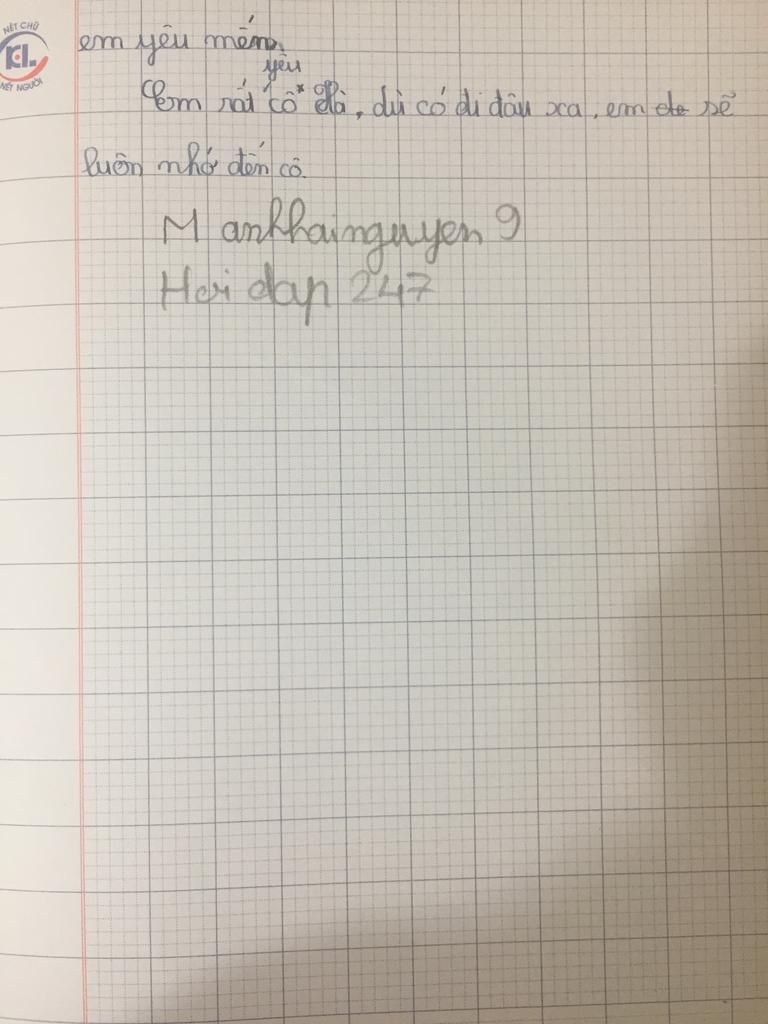 NÉT CHỮ
KL
NẾT NGƯỜI
em yêu mến.
yêu
Em rất cô* Hà, dù có đi đâu xa, em sẽ
luôn nhớ đến cô.
M ankhainguyen 9
Hoi dap 247